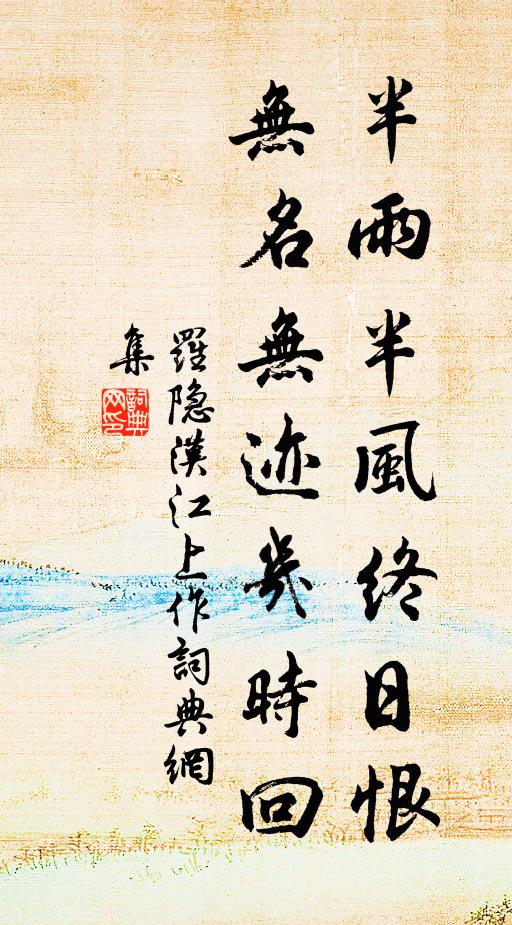 半雨半風終日恨
無名無迹幾時回
羅隐漢江上作詞典網
集
詞典
网印